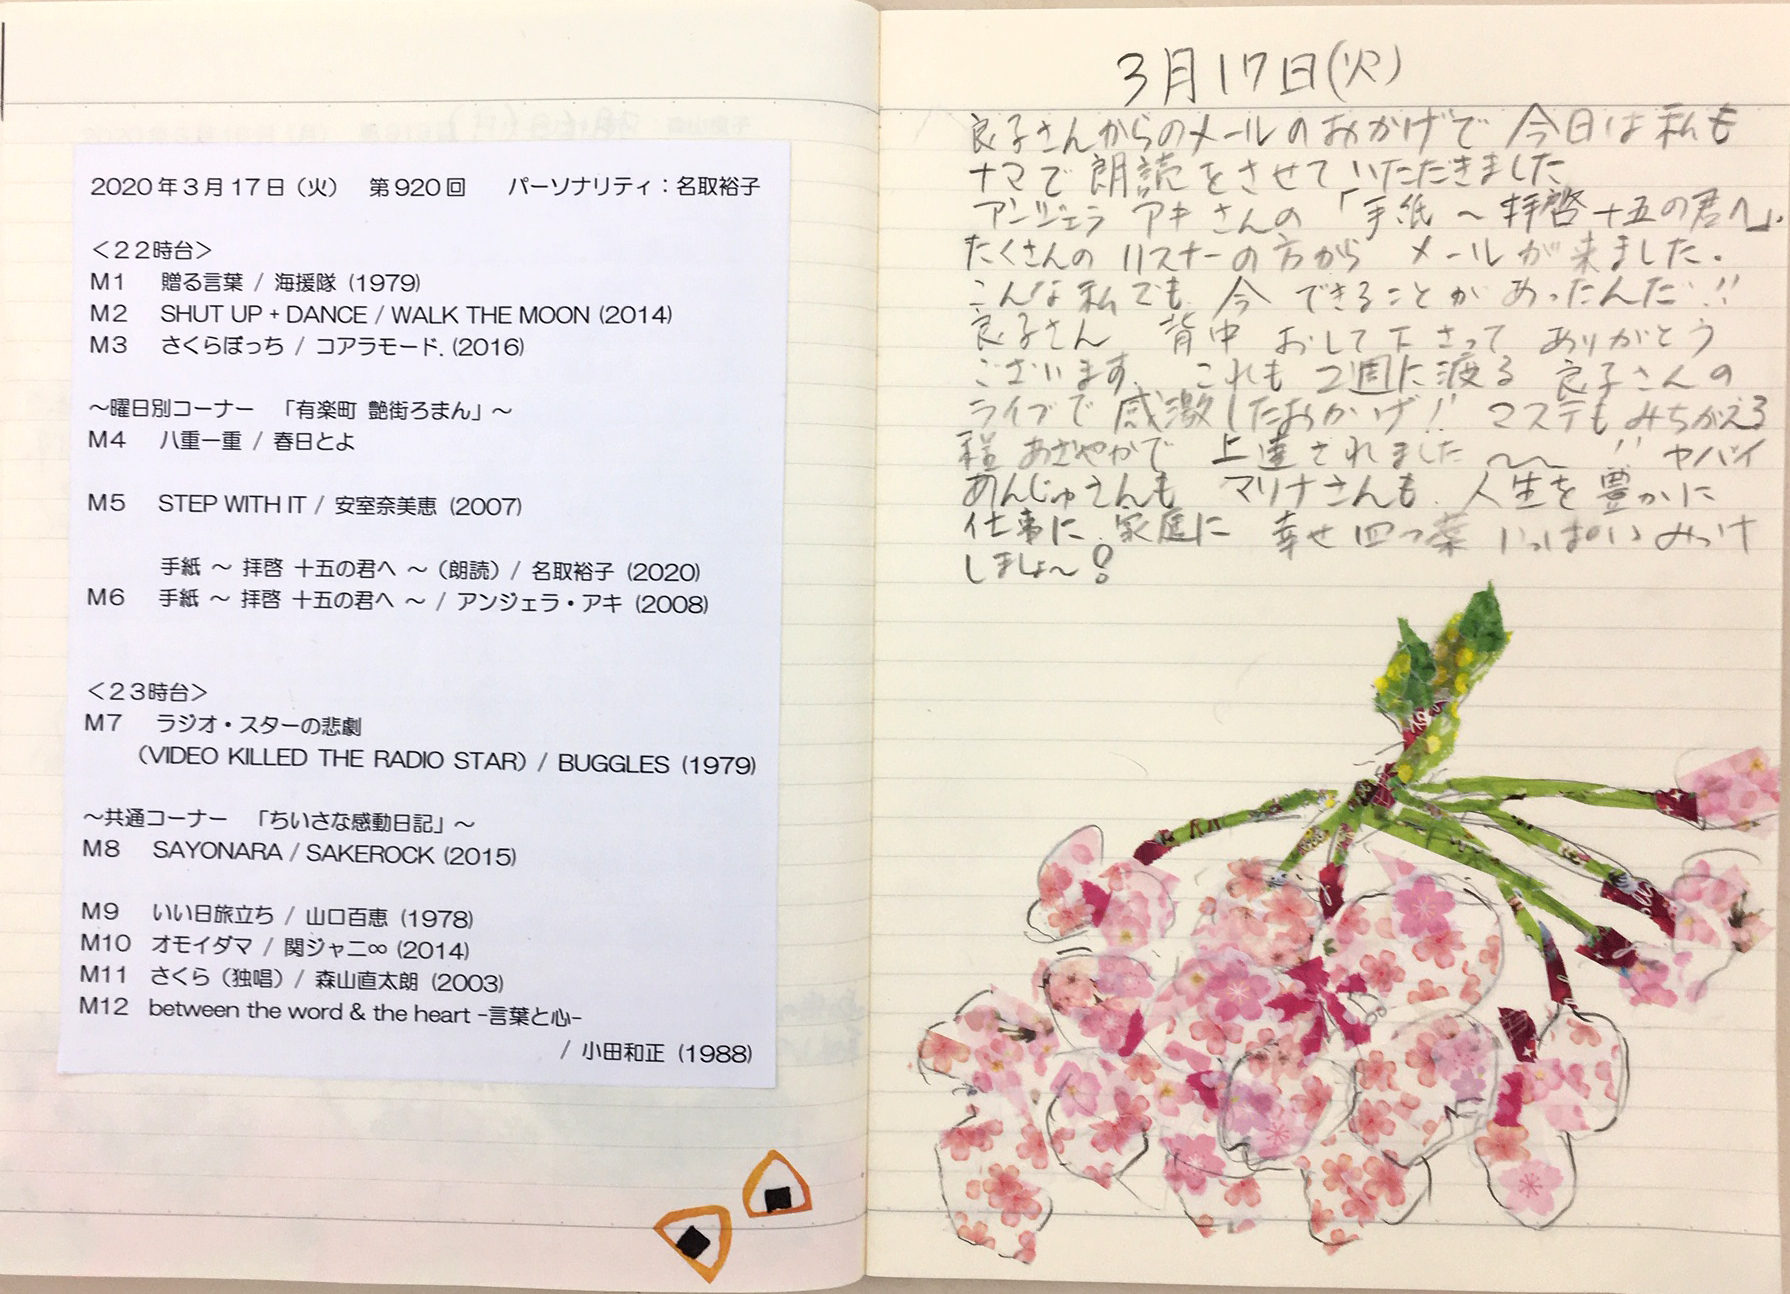 2020年3月17日（火）　第920回　　パーソナリティ：名取裕子
＜２２時台＞
M1　贈る言葉 / 海援隊 (1979)
M2　SHUT UP + DANCE / WALK THE MOON (2014)
M3　さくらぼっち / コアラモード. (2016)
～曜日別コーナー　「有楽町 艶街ろまん」～
M4　八重一重 / 春日とよ
M5　STEP WITH IT / 安室奈美恵 (2007)
手紙 ～ 拝啓 十五の君へ ～（朗読）/ 名取裕子 (2020)
M6　手紙 ～ 拝啓 十五の君へ ～ / アンジェラ・アキ (2008)
＜２３時台＞
M7　ラジオ・スターの悲劇
（VIDEO KILLED THE RADIO STAR）/ BUGGLES (1979)
～共通コーナー　「ちいさな感動日記」～
M8　SAYONARA / SAKEROCK (2015)
M9　いい日旅立ち / 山口百恵 (1978)
M10　オモイダマ / 関ジャニ∞ (2014)
M11　さくら（独唱）/ 森山直太朗 (2003)
M12　between the word & the heart -言葉と心-
/ 小田和正 (1988)
3月17日(火)
良子さんからのメールのおかげで 今日は私も
ナマで朗読をさせていただきました
アンジェラ アキさんの「手紙 〜拝啓十五の君へ」.
たくさんの リスナーの方から メールが来ました.
こんな私でも 今 できることが あったんだ!!
良子さん 背中 おして下さって ありがとう
ございます. これも 2週に渡る 良子さんの
ライブで 感激したおかげ!! マステも みちがえる
程 あざやかで 上達されました〜〜!! ヤバイ
あんじゅさんも マリナさんも. 人生を 豊かに
仕事に 家庭に 幸せ四つ葉 いっぱい みっけ
しましょ〜!